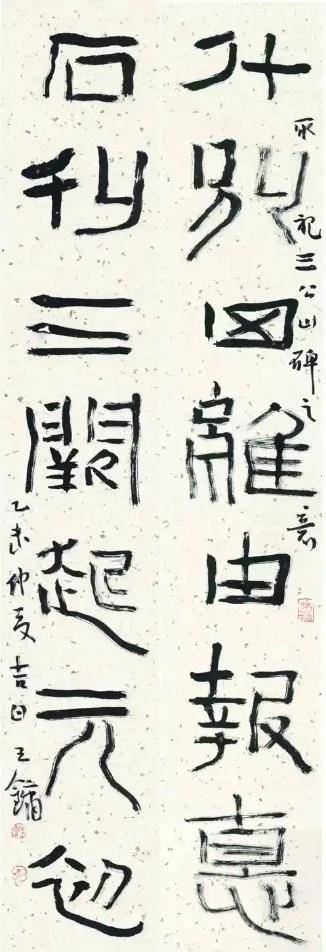 什別四離由報悳
取祀三公山碑之意
石刊三闕起元初
乙未仲夏吉日王鏞